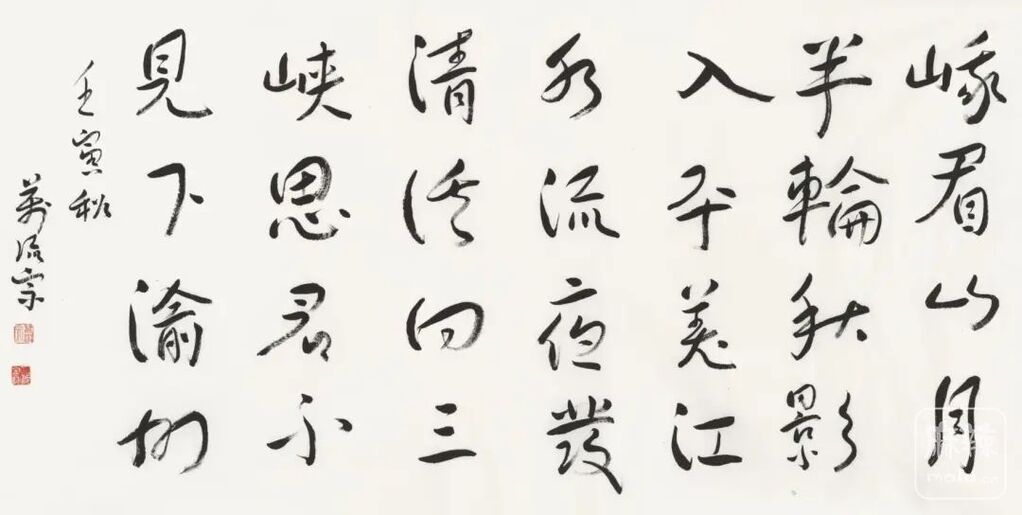 峨眉山月
半輪秋影
入平羌江
水流夜發
清溪向三
峽思君不
見下渝州
壬寅秋
萬流宗
麻辣
mala.cn